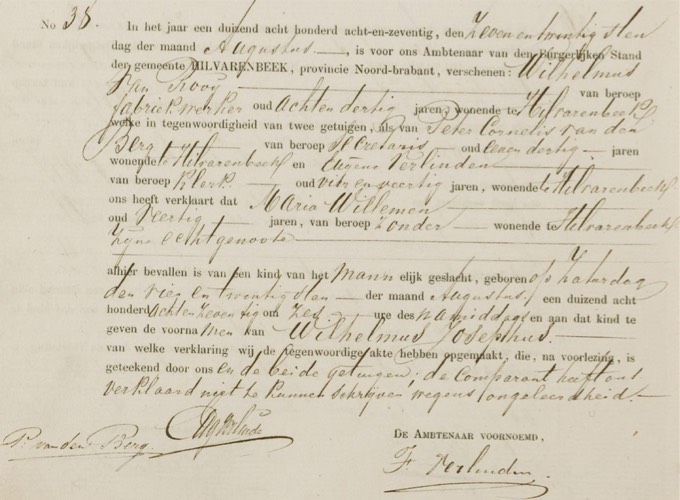 No 38.
In het jaar een duizend acht honderd acht-en-zeventig, den Zevenentwintigsten
dag der maand Augustus, is voor ons Ambtenaar van den Burgerlijken Stand
der gemeente HILVARENBEEK, provincie Noord-brabant, verschenen: Wilhelmus
Van Rooy van beroep
fabriekwerker oud Achtendertig jaren, wonende te Hilvarenbeek
welke in tegenwoordigheid van twee getuigen, als van Peter Cornelis van den
Berg van beroep Secretaris oud zevendertig jaren
wonende te Hilvarenbeek en Eugene Verlinden
van beroep Klerk oud vierenveertig jaren, wonende te Hilvarenbeek
ons heeft verklaart dat Maria Willemen
oud Veertig jaren, van beroep zonder wonende te Hilvarenbeek
zijne echtgenoote
alhier bevallen is van een kind van het Mannelijk geslacht, geboren op Zaturdag
den vier en twintigsten der maand Augustus, een duizend acht
honderd achtenzeventig om zes ure des namiddags en aan dat kind te
geven de voornamen van Wilhelmus Josephus.
van welke verklaring wij de tegenwoordige akte hebben opgemaakt, die, na voorlezing, is
geteekend door ons en de beide getuigen; de comparant heeft ons
verklaard niet te kunnen schrijven wegens ongeleerdheid.
P. van den Berg
DE AMBTENAAR VOORNOEMD,
F. Verlinden.